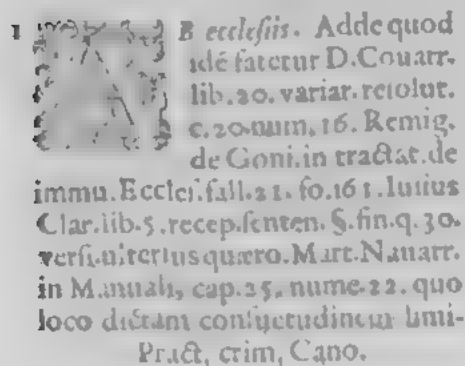 1 AB ecclesiis. Adde quod
idé fatetur D. Couarr.
lib. 20. variar. resolut.
c. 20. num. 16. Remig.
de Goni. in tractat. de
immu. Eccles. fall. 21. fo. 161. Iulius
Clar. lib. 5. recep. senten. §. fin. q. 30.
versi. ulterius quæro. Mart. Nauarr.
in Manuali, cap. 25. nume. 22. quo
loco dictam consuetudinem limi-
Pract, crim, Cano.